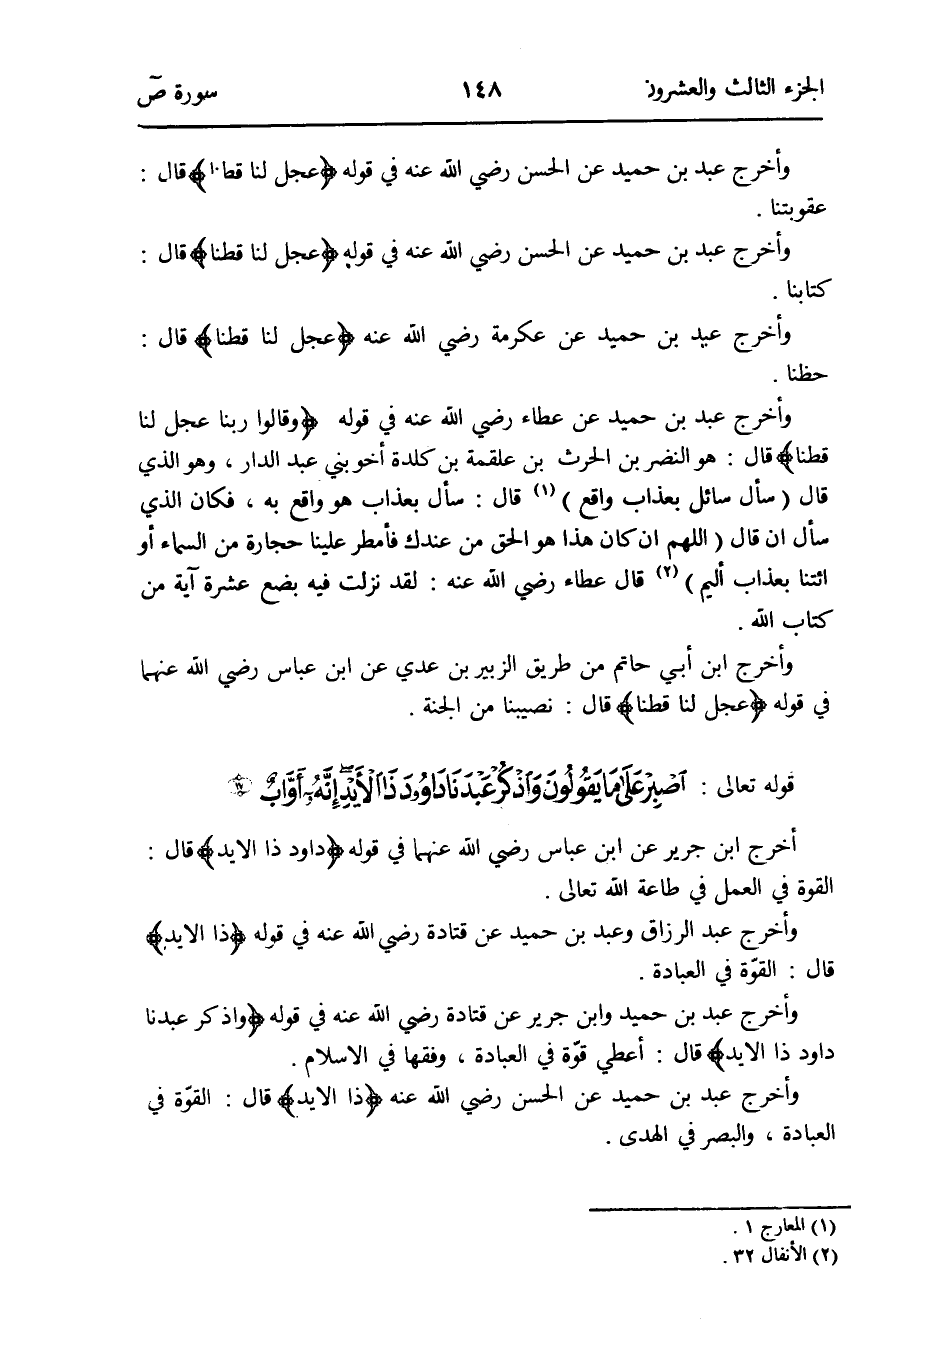 الجزء الثالث والعشرون ١٤٨ سورة صٓ
وأخرج عبد بن حميد عن الحسن رضي الله عنه في قوله ﴿عجل لنا قطنا﴾ قال :
عقوبتنا .
وأخرج عبد بن حميد عن الحسن رضي الله عنه في قوله ﴿عجل لنا قطنا﴾ قال :
كتابنا .
وأخرج عبد بن حميد عن عكرمة رضي الله عنه ﴿عجل لنا قطنا﴾ قال :
حظنا .
وأخرج عبد بن حميد عن عطاء رضي الله عنه في قوله ﴿وقالوا ربنا عجل لنا
قطنا﴾ قال : هو النضر بن الحرث بن علقمة بن كلدة أخو بني عبد الدار ، وهو الذي
قال ( سأل سائل بعذاب واقع ) (١) قال : سأل بعذاب هو واقع به ، فكان الذي
سأل ان قال ( اللهم ان كان هذا هو الحق من عندك فأمطر علينا حجارة من السماء أو
ائتنا بعذاب أليم ) (٢) قال عطاء رضي الله عنه : لقد نزلت فيه بضع عشرة آية من
كتاب الله .
وأخرج ابن أبي حاتم من طريق الزبير بن عدي عن ابن عباس رضي الله عنهما
في قوله ﴿عجل لنا قطنا﴾ قال : نصيبنا من الجنة .
قوله تعالى : ٱصْبِرْ عَلَىٰ مَا يَقُولُونَ وَٱذْكُرْ عَبْدَنَا دَاوُۥدَ ذَا ٱلْأَيْدِۖ إِنَّهُۥٓ أَوَّابٌ
أخرج ابن جرير عن ابن عباس رضي الله عنهما في قوله ﴿داود ذا الايد﴾ قال :
القوة في العمل في طاعة الله تعالى .
وأخرج عبد الرزاق وعبد بن حميد عن قتادة رضي الله عنه في قوله ﴿ذا الايد﴾
قال : القوّة في العبادة .
وأخرج عبد بن حميد وابن جرير عن قتادة رضي الله عنه في قوله ﴿واذكر عبدنا
داود ذا الايد﴾ قال : أعطي قوّة في العبادة ، وفقها في الاسلام .
وأخرج عبد بن حميد عن الحسن رضي الله عنه ﴿ذا الايد﴾ قال : القوّة في
العبادة ، والبصر في الهدى .
(١) المعارج ١ .
(٢) الأنفال ٣٢ .